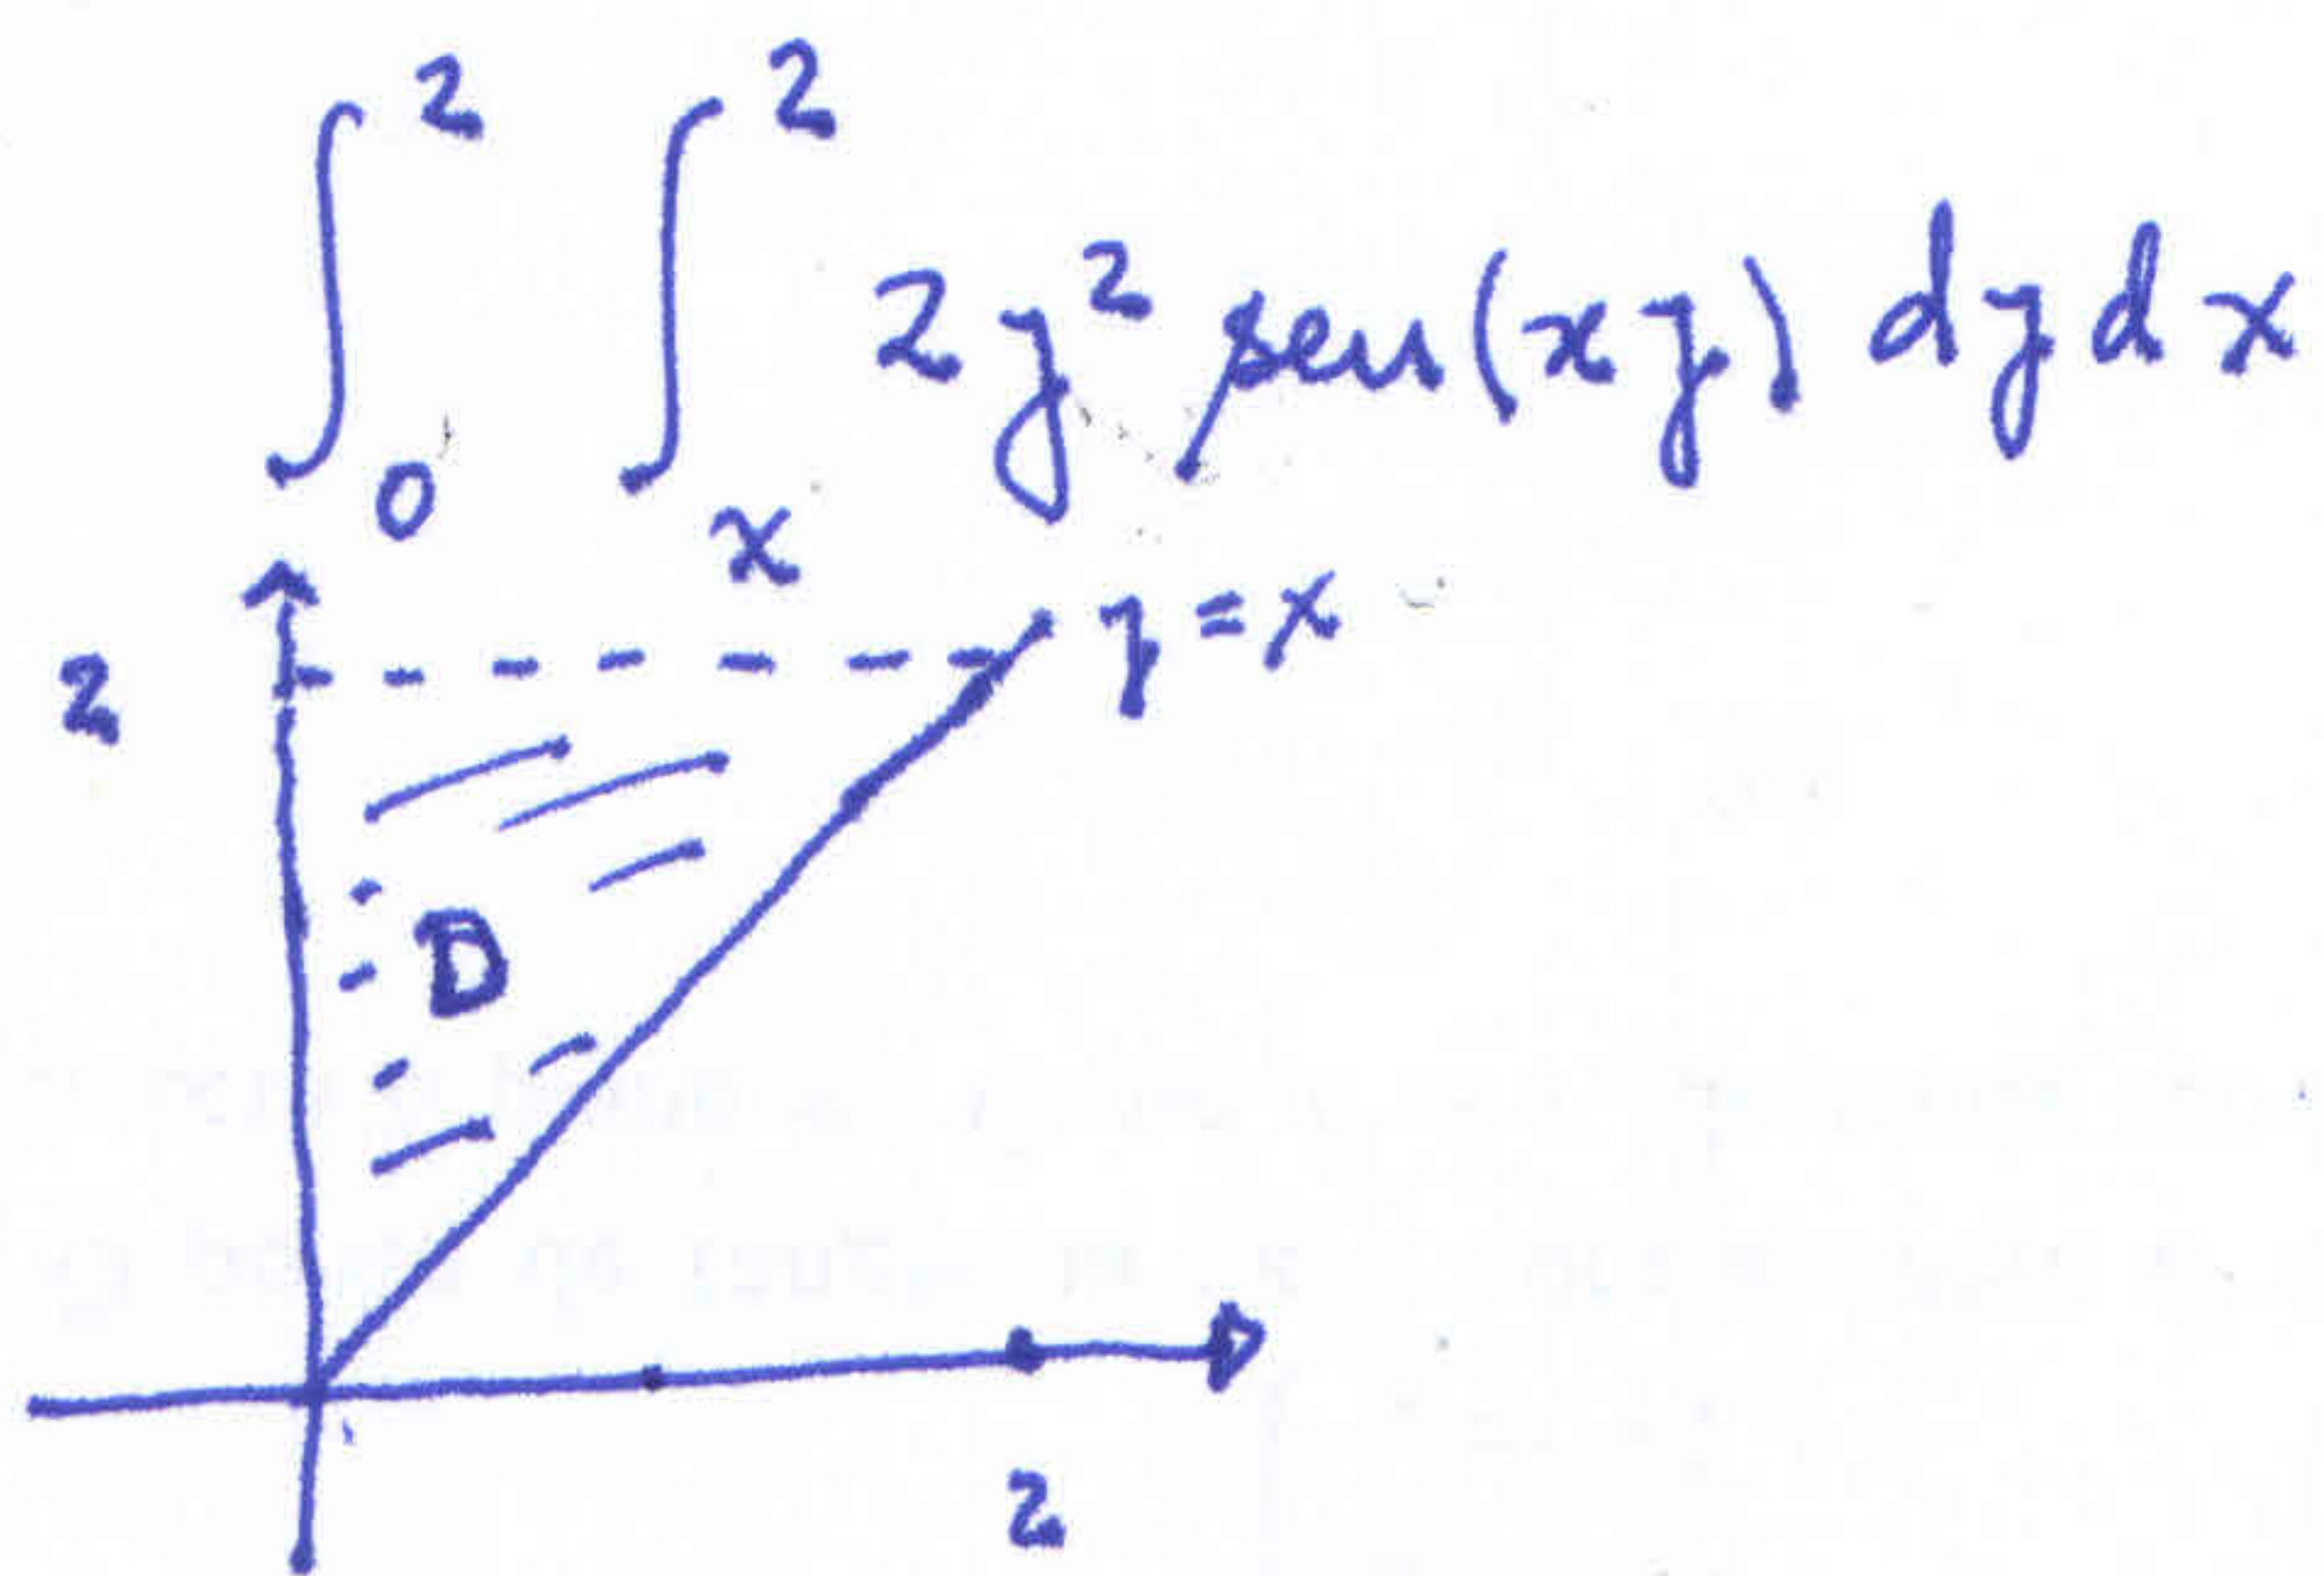 ∫₀² ∫ₓ² 2y² sen(xy) dy dx
y = x
2
D
2